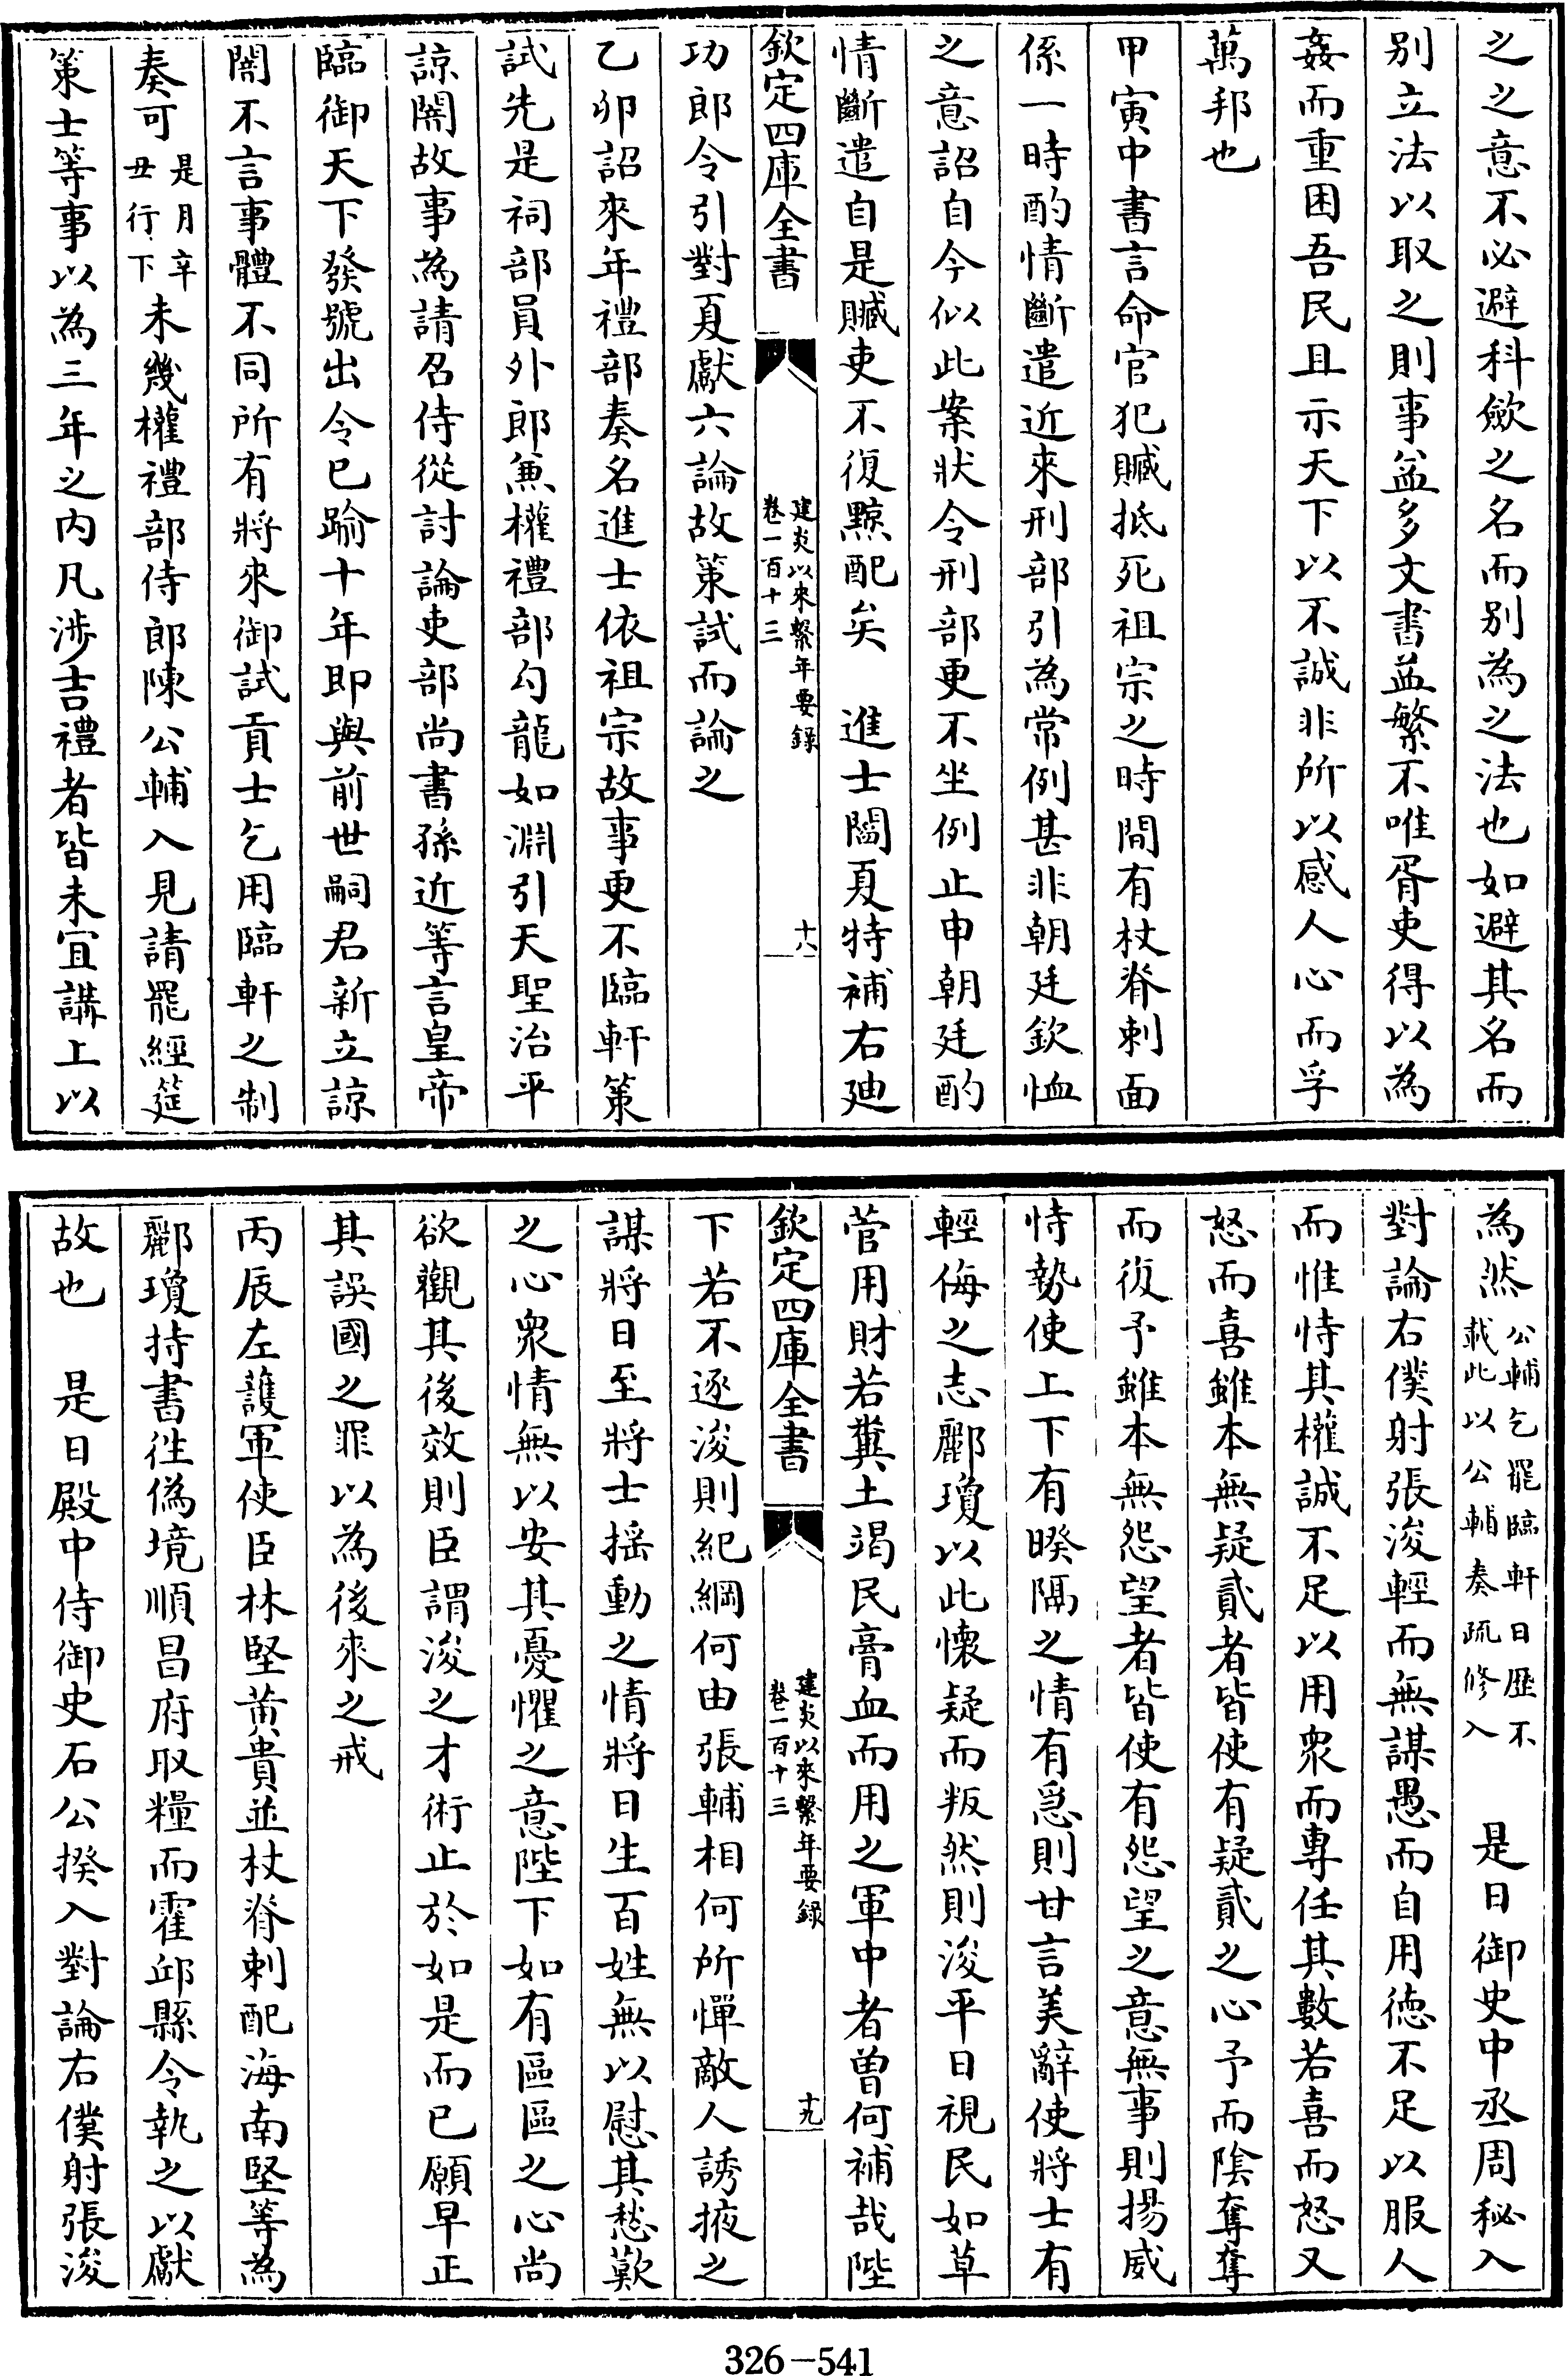 之之意不必避科歛之名而别為之法也如避其名而
别立法以取之則事益多文書益繁不唯胥吏得以為
姦而重困吾民且示天下以不誠非所以感人心而孚
萬邦也
甲寅中書言命官犯贓抵死祖宗之時間有杖脊刺面
係一時酌情斷遣近來刑部引為常例甚非朝廷欽恤
之意詔自今似此案狀令刑部更不坐例止申朝廷酌
情斷遣自是贓吏不復黥配矣　進士閻夏特補右廸
欽定四庫全書
建炎以來繫年要錄
卷一百十三
十八
功郎令引對夏獻六論故策試而論之
乙卯詔來年禮部奏名進士依祖宗故事更不臨軒策
試先是祠部員外郎兼權禮部勾龍如淵引天聖治平
諒闇故事為請召侍從討論吏部尚書孫近等言皇帝
臨御天下發號出令已踰十年即與前世嗣君新立諒
闇不言事體不同所有將來御試貢士乞用臨軒之制
奏可是月辛丑行下未幾權禮部侍郎陳公輔入見請罷經筵
策士等事以為三年之内凡涉吉禮者皆未宜講上以
為然公輔乞罷臨軒日歷不載此以公輔奏疏修入　是日御史中丞周秘入
對論右僕射張浚輕而無謀愚而自用徳不足以服人
而惟恃其權誠不足以用衆而專任其數若喜而怒又
怒而喜雖本無疑貳者皆使有疑貳之心予而陰奪奪
而復予雖本無怨望者皆使有怨望之意無事則揚威
恃勢使上下有暌隔之情有急則甘言美辭使將士有
輕侮之志酈瓊以此懷疑而叛然則浚平日視民如草
菅用財若糞土竭民膏血而用之軍中者曽何補哉陛
欽定四庫全書
建炎以來繫年要錄
卷一百十三
十九
下若不逐浚則紀綱何由張輔相何所憚敵人誘掖之
謀將日至將士揺動之情將日生百姓無以慰其愁歎
之心衆情無以安其憂懼之意陛下如有區區之心尚
欲觀其後效則臣謂浚之才術止於如是而已願早正
其誤國之罪以為後來之戒
丙辰左䕶軍使臣林堅黄貴並杖脊刺配海南堅等為
酈瓊持書徃偽境順昌府取糧而霍邱縣令執之以獻
故也　是日殿中侍御史石公揆入對論右僕射張浚
326－541